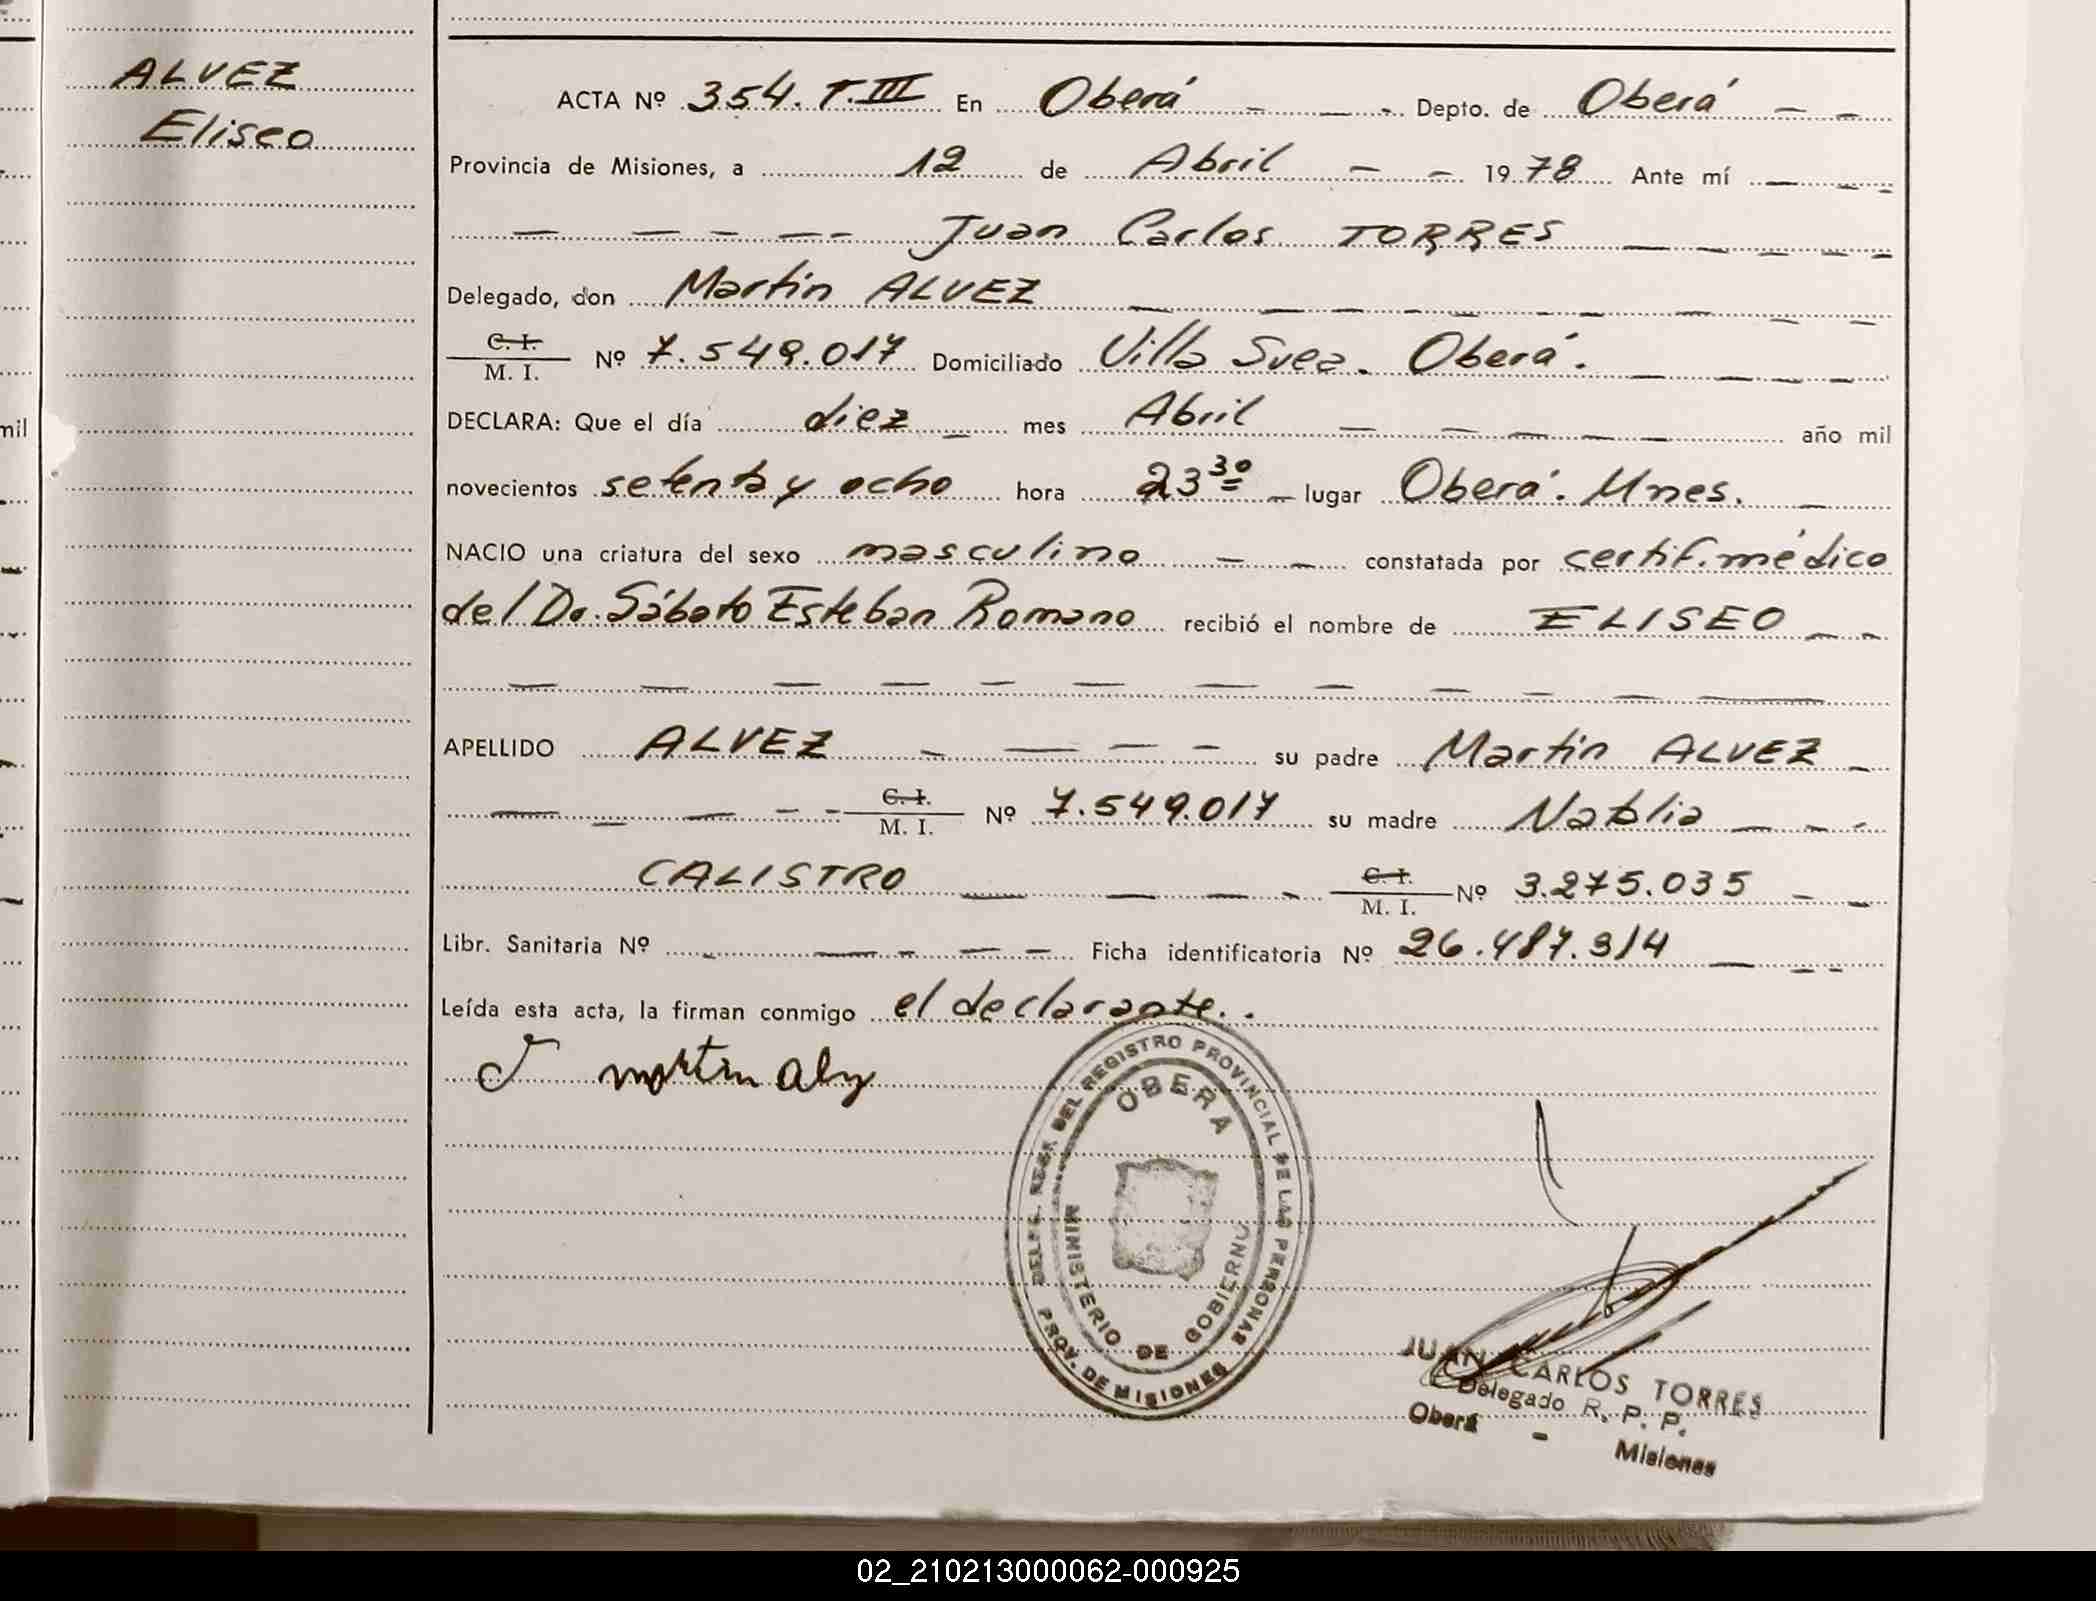 mil
ALVEZ
Eliseo
ACTA Nº 354. T. III En Oberá Depto. de Oberá
Provincia de Misiones, a 12 de Abril 1978 Ante mí
Juan Carlos TORRES
Delegado, don Martin ALVEZ
C. I.
M. I. Nº 7.549.017 Domiciliado Villa Suez. Oberá.
DECLARA: Que el día diez mes Abril año mil
novecientos setenta y ocho hora 23 30 lugar Oberá. Mnes.
NACIO una criatura del sexo masculino constatada por certif. médico
del Dr. Sábato Esteban Romano recibió el nombre de ELISEO
APELLIDO ALVEZ su padre Martin ALVEZ
C. I.
M. I. Nº 7.549.017 su madre Natalia
CALISTRO C. I.
M. I. Nº 3.275.035
Libr. Sanitaria Nº Ficha identificatoria Nº 26.487.314
Leída esta acta, la firman conmigo el declarante..
martin
DELEG. REGR. DEL REGISTRO PROVINCIAL DE LAS PERSONAS
OBERA
MINISTERIO DE GOBIERNO
PROV. DE MISIONES
JUAN CARLOS TORRES
Delegado R. P. P.
Oberá - Misiones
02_210213000062-000925